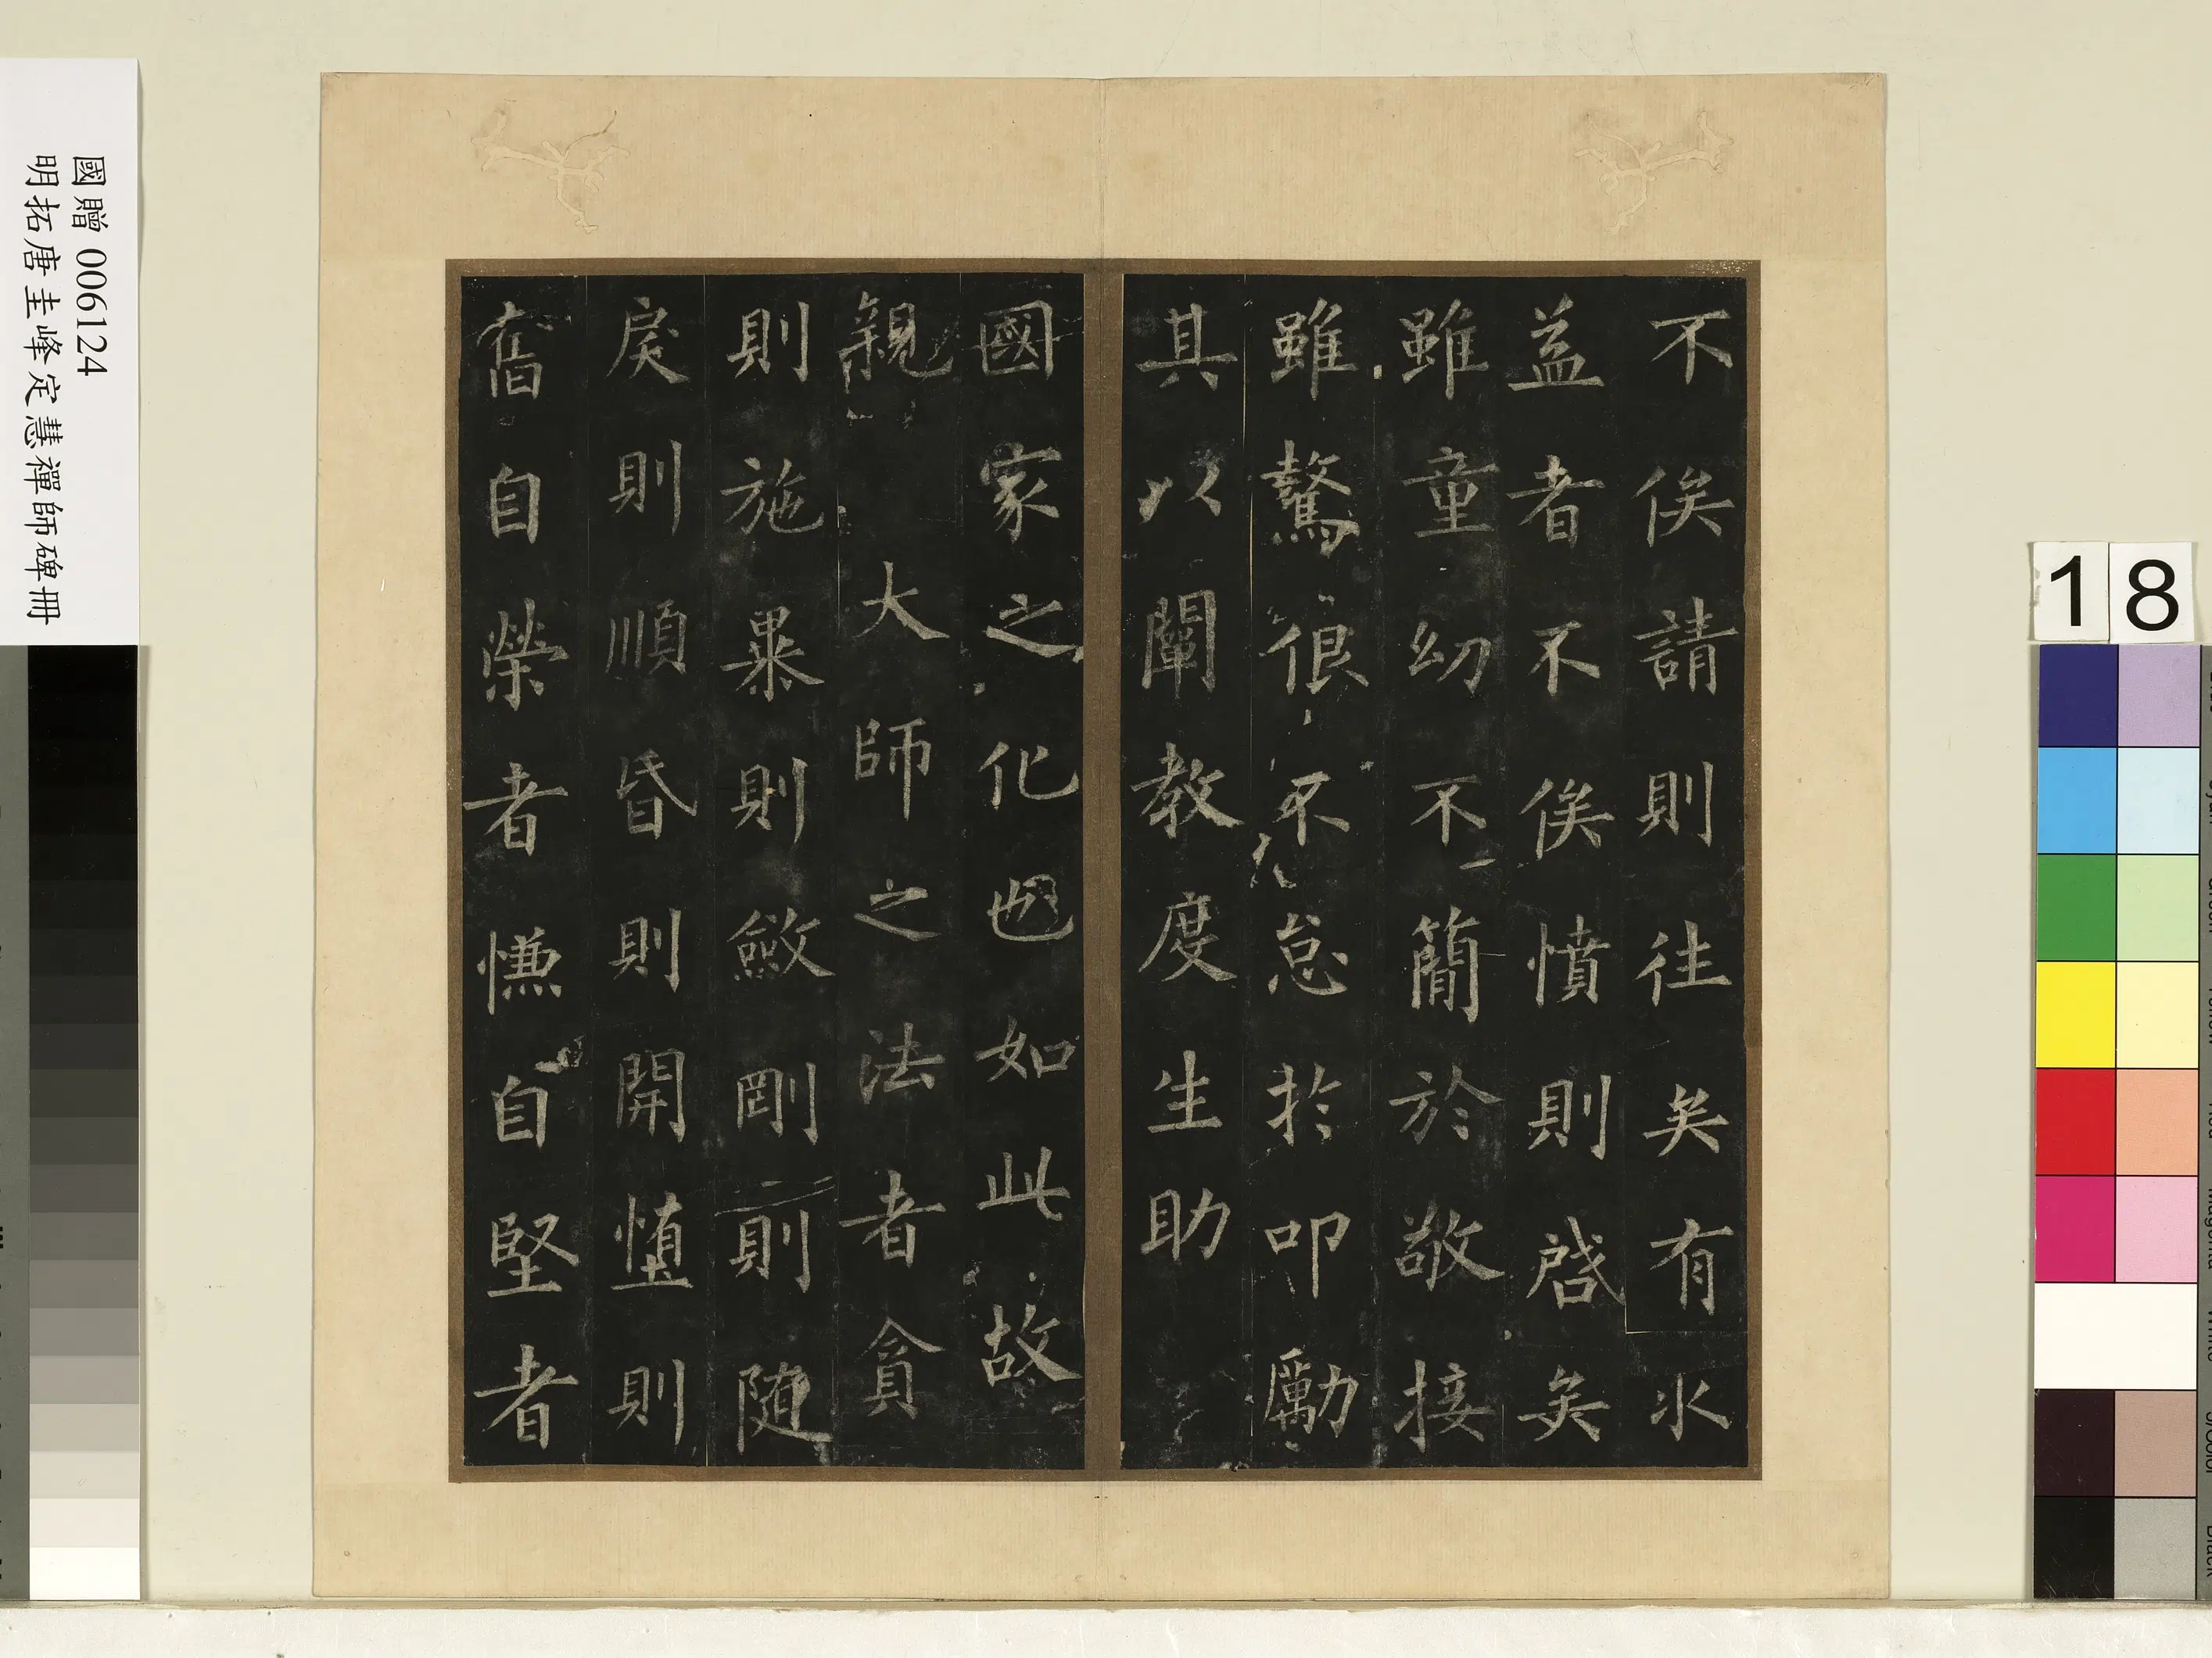 不俟請則往矣有求
益者不俟憤則啓矣
雖童幼不簡於敬接
雖驁很不怠於叩勵
其以闡教度生助
國家之化也如此故
親 大師之法者貪
則施暴則斂剛則隨
戾則順昏則開墮則
奮自榮者慊自堅者
國贈 006124
明拓唐圭峰定慧禪師碑冊
18